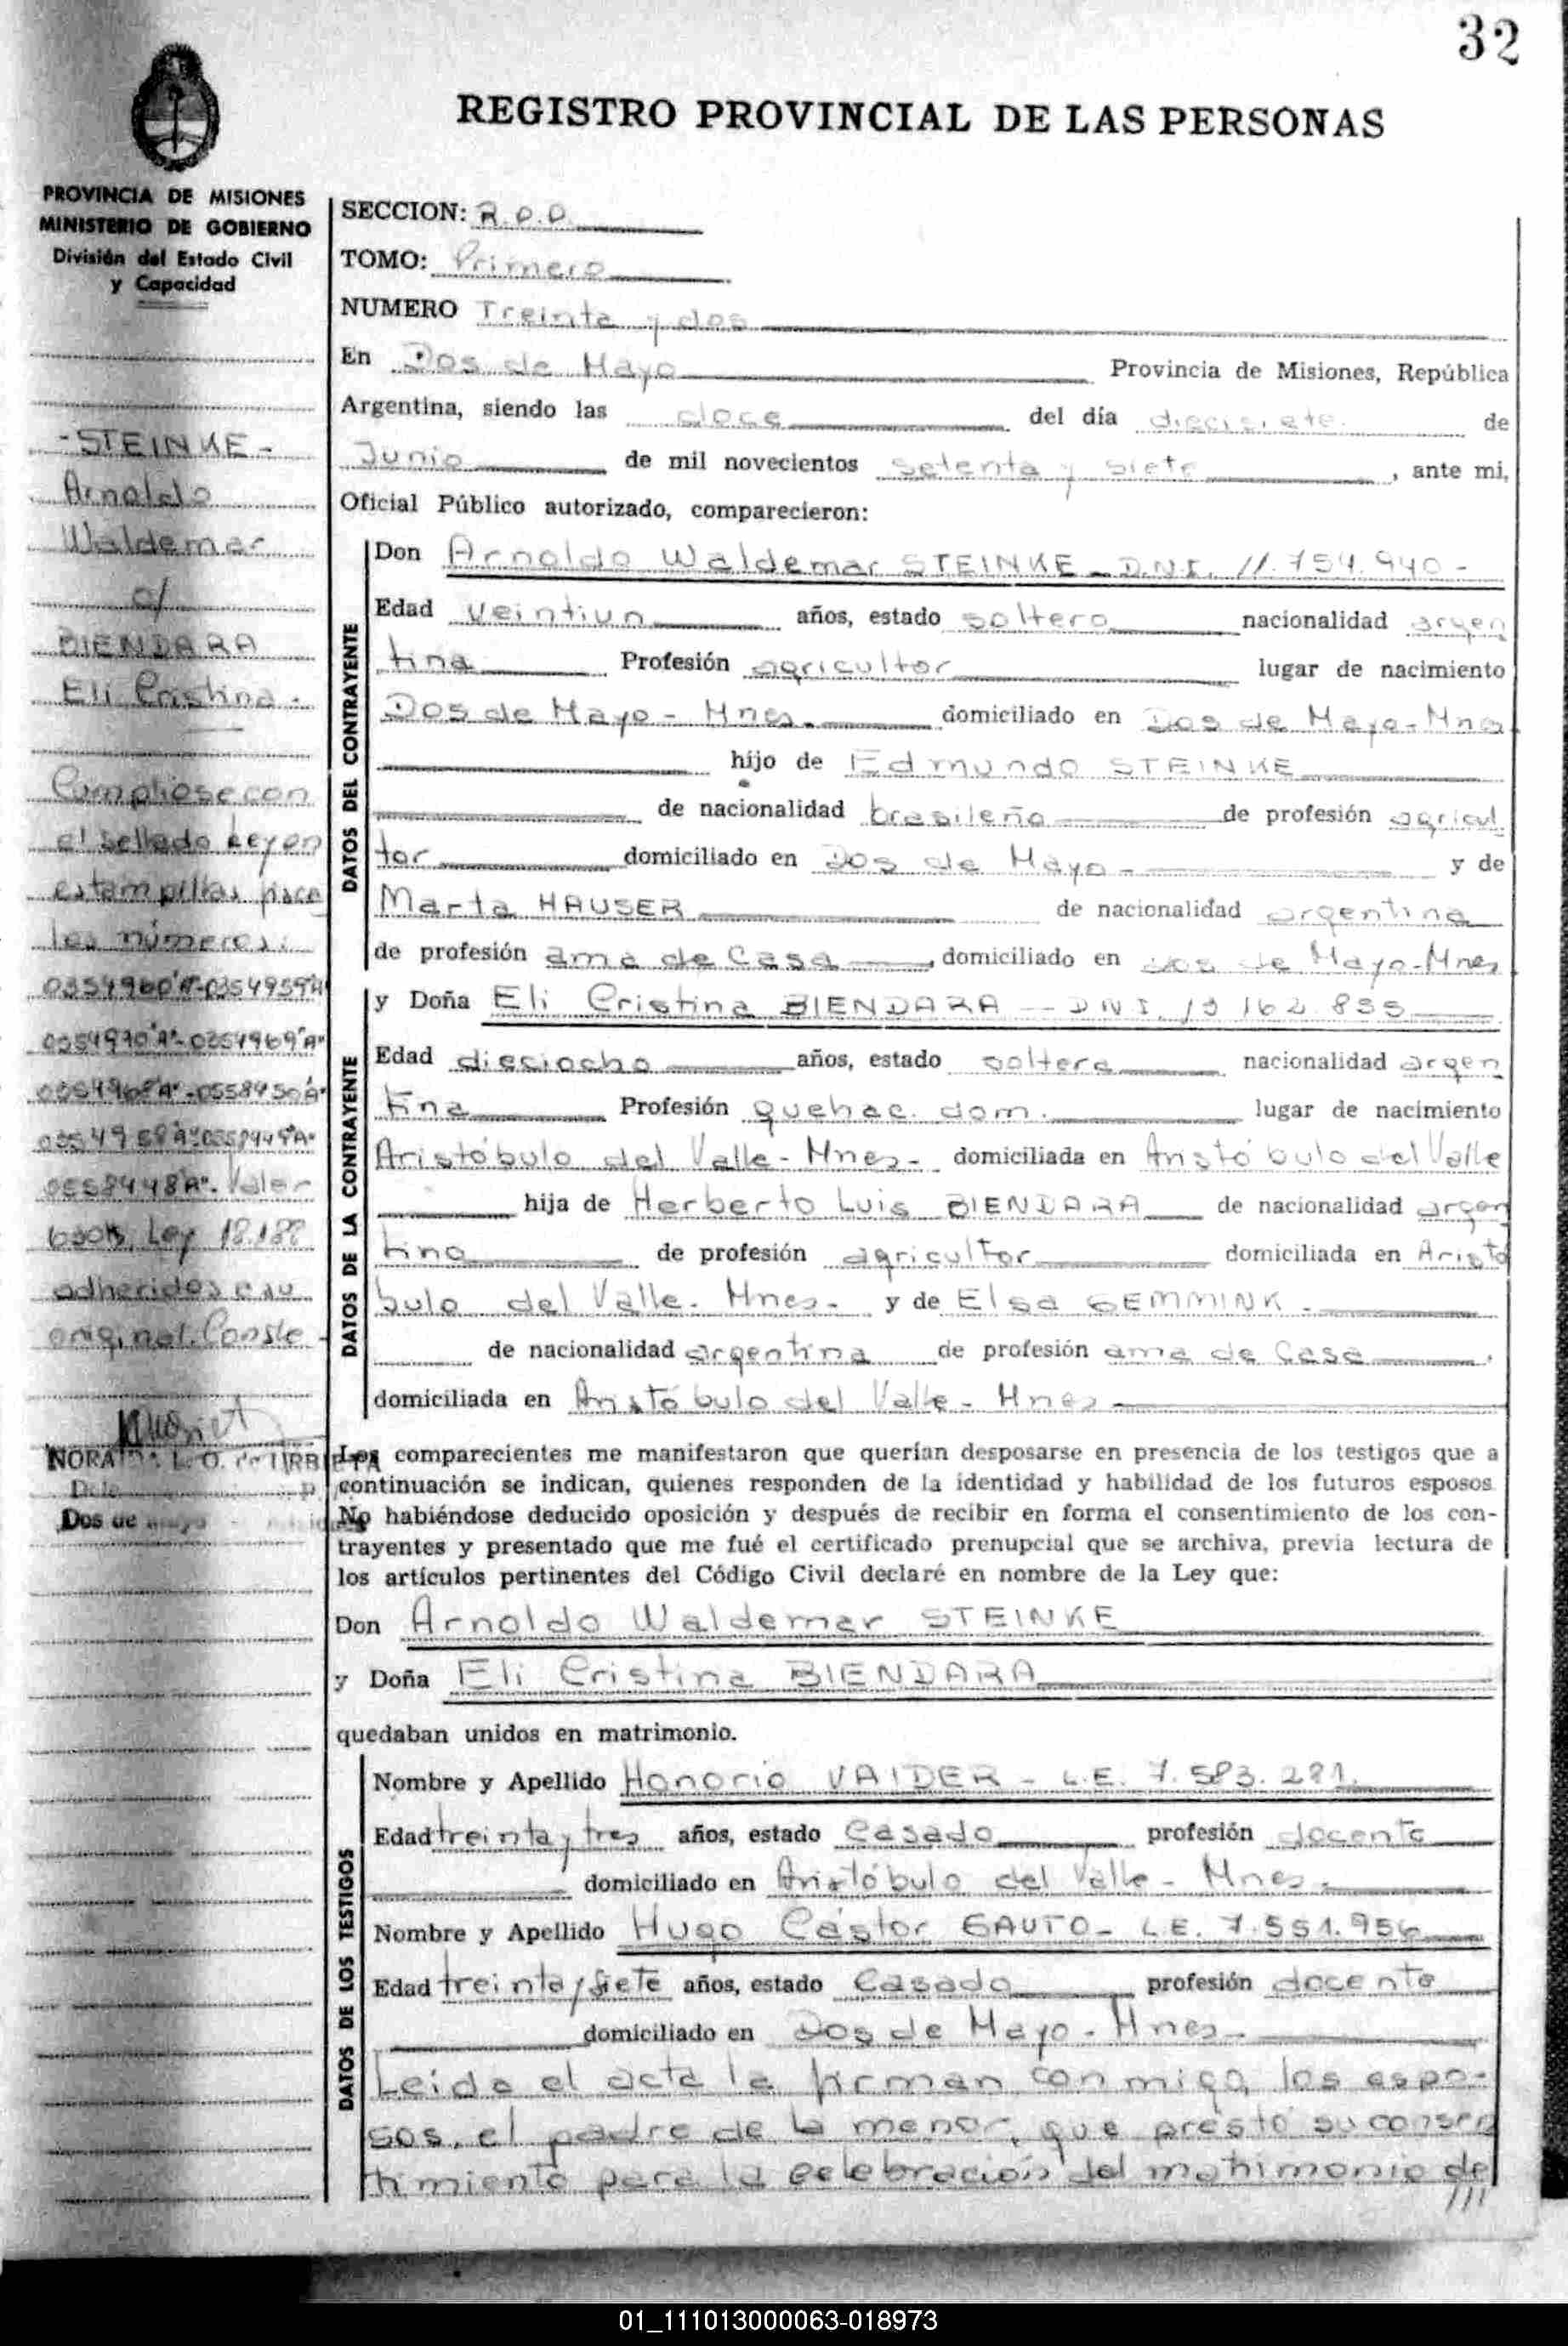 32
REGISTRO PROVINCIAL DE LAS PERSONAS
PROVINCIA DE MISIONES
MINISTERIO DE GOBIERNO
División del Estado Civil
y Capacidad
-STEINKE-
Arnoldo
Waldemar
c/
BIENDARA
Eli Cristina.
Cumpliose con
el sellado Ley en
estampillas
los números:
0354970"A"-0354969"A"
Valor
Ley 18.188
adheridos a su
original. Conste
NORA L. O. de URBIETA
Dos de Mayo
SECCION: R.O.O.
TOMO: Primero
NUMERO Treinta y dos
En Dos de Mayo Provincia de Misiones, República
Argentina, siendo las doce del día diecisiete de
Junio de mil novecientos setenta y siete, ante mi,
Oficial Público autorizado, comparecieron:
DATOS DEL CONTRAYENTE
Don Arnoldo Waldemar STEINKE - D.N.I. 11.754.940-
Edad veintiun años, estado soltero nacionalidad argen
tina Profesión agricultor lugar de nacimiento
Dos de Mayo - Mnes. domiciliado en Dos de Mayo-Mnes
hijo de Edmundo STEINKE
de nacionalidad brasileña de profesión agricul
tor domiciliado en Dos de Mayo - y de
Marta HAUSER de nacionalidad argentina
de profesión ama de Casa, domiciliado en Dos de Mayo-Mnes
DATOS DE LA CONTRAYENTE
y Doña Eli Cristina BIENDARA - D.N.I. 13.162.855
Edad dieciocho años, estado soltera nacionalidad argen
tina Profesión quehac. dom. lugar de nacimiento
Aristóbulo del Valle - Mnes- domiciliada en Aristóbulo del Valle
hija de Herberto Luis BIENDARA de nacionalidad argen
tina de profesión agricultor domiciliada en Aristó
bulo del Valle. Mnes. y de Elsa GEMMINK.
de nacionalidad argentina de profesión ama de Casa,
domiciliada en Aristóbulo del Valle - Mnes
Los comparecientes me manifestaron que querían desposarse en presencia de los testigos que a
continuación se indican, quienes responden de la identidad y habilidad de los futuros esposos
No habiéndose deducido oposición y después de recibir en forma el consentimiento de los con-
trayentes y presentado que me fué el certificado prenupcial que se archiva, previa lectura de
los artículos pertinentes del Código Civil declaré en nombre de la Ley que:
Don Arnoldo Waldemar STEINKE
y Doña Eli Cristina BIENDARA
quedaban unidos en matrimonio.
DATOS DE LOS TESTIGOS
Nombre y Apellido Honorio VAIDER - L.E. 7.583.281.
Edad treinta y tres años, estado Casado profesión docente
domiciliado en Aristóbulo del Valle - Mnes.
Nombre y Apellido Hugo Cástor GAUTO- L.E. 7.551.956
Edad treinta y siete años, estado Casado profesión docente
domiciliado en Dos de Mayo - Mnes-
Leída el acta la firman conmigo, los espo-
sos, el padre de la menor, que prestó su consen
timiento para la celebración del matrimonio de
///
01_111013000063-018973